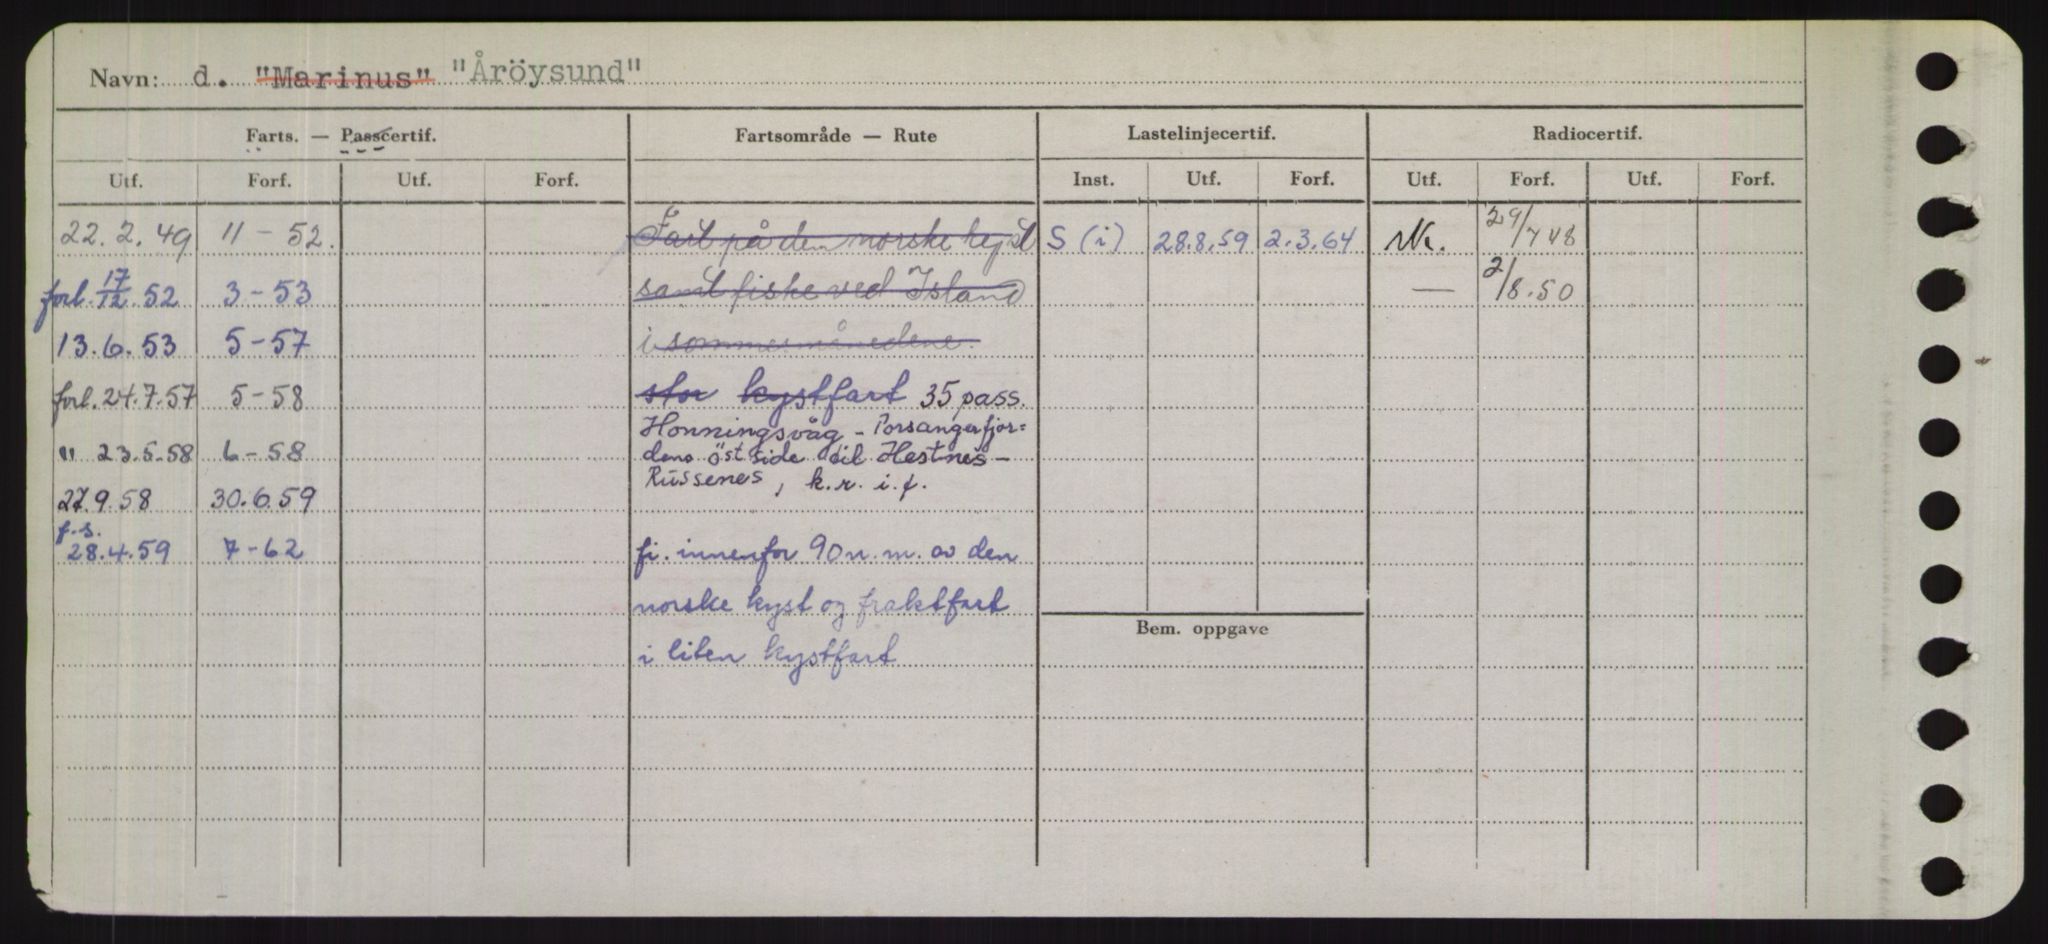 Navn: d. "Marinus" "Åröysund"
Farts. — Passcertif. Fartsområde — Rute Lastelinjecertif. Radiocertif.
Utf. Forf. Utf. Forf. Inst. Utf. Forf. Utf. Forf. Utf. Forf.
22.2.49 11-52. Fart på den norske kyst S (i) 28.8.59 2.3.64 29/7 48
forl. 17/12.52 3-53 samt fiske ved Island — 2/8.50
13.6.53 5-57 i sommermånedene.
forl. 24.7.57 5-58 stor kystfart 35 pass.
Honningsvåg - Porsangerfjor=
" 23.5.58 6-58 dens östside til Hestnes -
Russenes, k.r. i.f.
27.9.58 30.6.59
f.s.
28.4.59 7-62 fi. innenfor 90 n.m. av den
norske kyst og fraktfart
Bem. oppgave
i liten kystfart